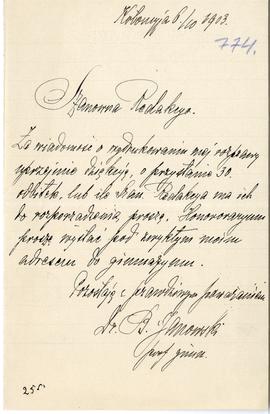 Kołomyja 6/IV 1903.
774.
Szanowna Redakcyo.
Za wiadomość o wydrukowaniu mej rozprawy
uprzejmie dziękuję, o przysłanie 30.
odbitek, lub ile Szan. Redakcya ma ich
do rozporządzenia, proszę. Honoraryum
proszę wysłać pod zwykłym moim
adresem do gimnazyum.
Pozostaję z prawdziwym poważaniem
Dr. B. Janowski
prof. gimn.
25.